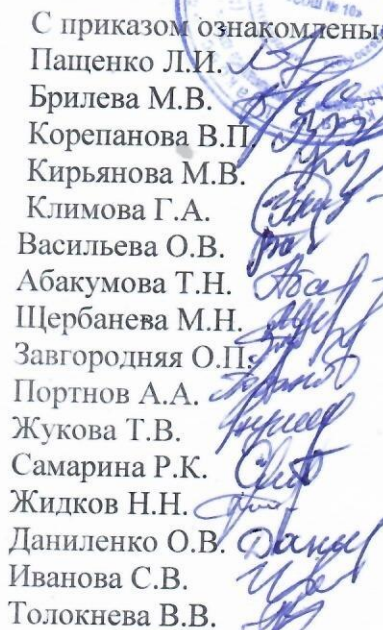 С приказом ознакомлены:
Пащенко Л.И.
Брилева М.В.
Корепанова В.П.
Кирьянова М.В.
Климова Г.А.
Васильева О.В.
Абакумова Т.Н.
Щербанева М.Н.
Завгородняя О.П.
Портнов А.А.
Жукова Т.В.
Самарина Р.К.
Жидков Н.Н.
Даниленко О.В.
Иванова С.В.
Толокнева В.В.